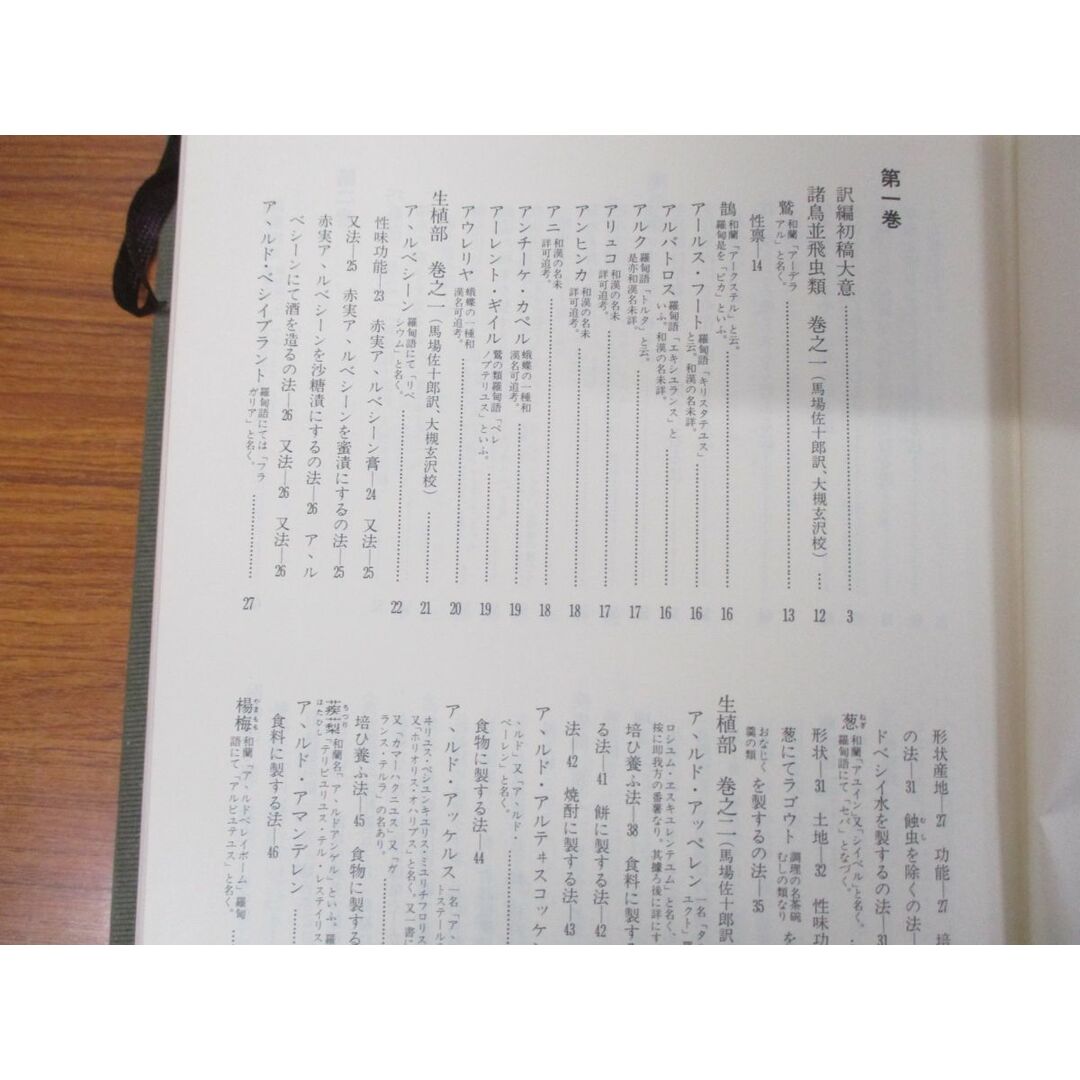 第一巻
訳編初稿大意……3
諸鳥並飛虫類　巻之一（馬場佐十郎訳、大槻玄沢校）…12
鷲 和蘭「アーデラアル」と名く。……13
性禀—14
鵲 和蘭「アークステル」と云。羅甸是を「ピカ」といふ。……16
アールス・フート 羅甸語「キリスタテユス」と云。和漢の名未詳。……16
アルバトロス 羅甸語「エキシユランス」といふ。和漢の名未詳。……16
アルク 羅甸語「トルダ」と云。是亦和漢名未詳。……17
アリュコ 和漢の名未詳可追考。……17
アンヒンカ 和漢の名未詳可追考。……18
アニ 和漢の名未詳可追考。……18
アンチーケ・カペル 蛾蝶の一種和漢名可追考。……19
アーレント・ギイル 鷲の類羅甸語「ペレノプテリユス」といふ。……19
アウレリヤ 蛾蝶の一種和漢名可追考。……20
生植部　巻之一（馬場佐十郎訳、大槻玄沢校）……21
アヽルベシーン 羅甸語にて「リベシウム」と名く。……22
性味功能—23　赤実アヽルベシーン膏—24　又法—25
又法—25　赤実アヽルベシーンを蜜漬にするの法—25
赤実アヽルベシーンを沙糖漬にするの法—26　アヽル
ベシーンにて酒を造るの法—26　又法—26　又法—26
アヽルド・ベシイブラント 羅甸語にては「フラガリア」と名く。……27
形状産地—27　功能—27　培
の法—31　蝕虫を除くの法—
ドベシイ水を製するの法—31
葱 和蘭「アユイン」又「シイペル」と名く。羅甸語にて「セパ」となづく。
形状—31　土地—32　性味功
葱にてラゴウト 調理の名茶碗むしの類なり を
おなじく羹の類 を製するの法—35
生植部　巻之二（馬場佐十郎訳
アヽルド・アッペレン 一名「タ
ロシユム・エスキユレンテユム」と名く、
按に即我方の番薯なり。其據ろ後に詳にす
培ひ養ふ法—38　食料に製す
る法—41　餅に製する法—42
法—42　焼酎に製する法—43
アヽルド・アルテヰスコッケン
ヽルド」又「アヽルド・ペーレン」と名く。
食物に製する法—44
アヽルド・アッケルス 一名「アヽ
又「カマーハクニユス」又「ガランス・テルラ」の名あり。
培ひ養ふ法—45　食物に製する
蒺蔾 和蘭名「アヽルドアンゲル」といふ。羅
アヽルド・アマンデレン
食料に製する法—46
楊梅 和蘭「アヽルドベレイボーム」羅甸語にて「アルビユテユス」と名く。